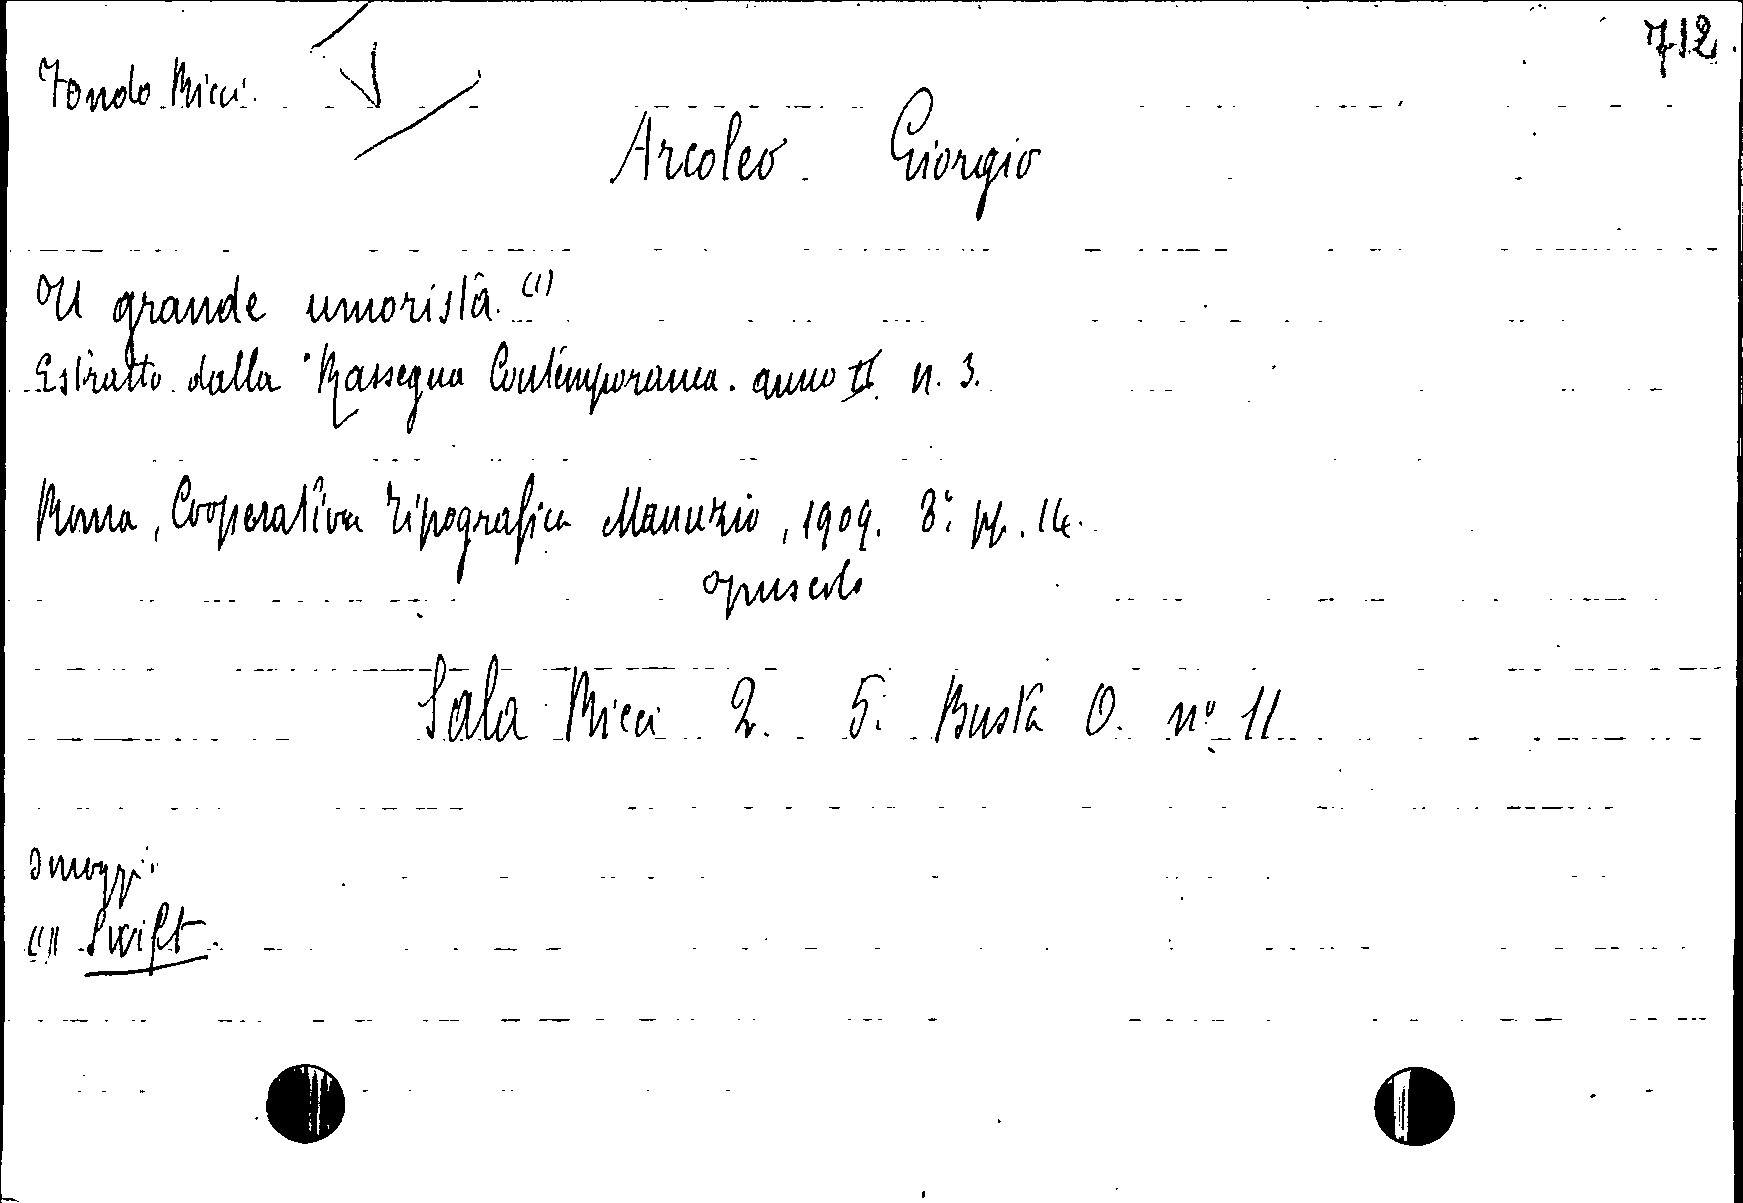 712.
Fondo Ricci.
Arcoleo. Giorgio
Il grande umorista. (1)
Estratto dalla "Rassegna Contemporanea. anno II. n. 3.
Roma, Cooperativa Tipografica Manuzio, 1909. 8º. pp. 14.
opuscolo
Sala Ricci 2. 5. Busta O. nº 11
(1) Swift.